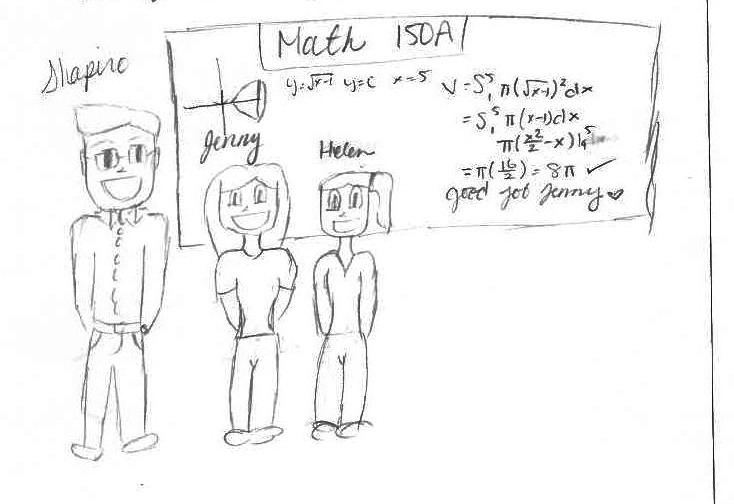 Math 150A
Shapiro
y=√x-1 y=c x=5
V=∫₁⁵ π(√x-1)²dx
=∫₁⁵ π(x-1)dx
π(x²/2-x)|₁⁵
=π(16/2)=8π ✓
good job Jenny ♡
Jenny
Helen